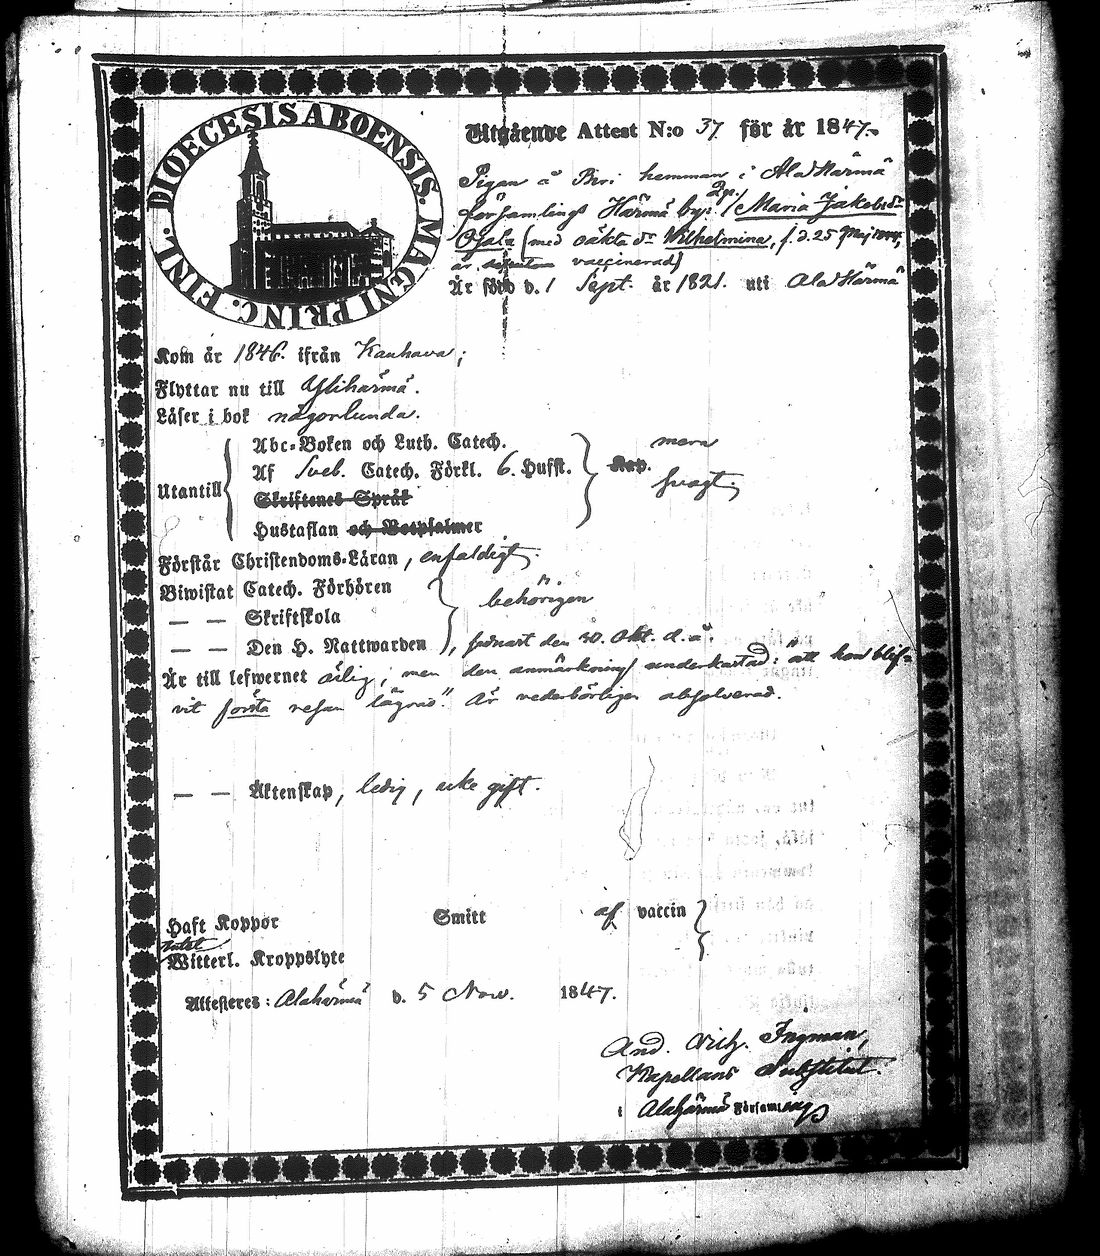 DIOECESIS ABOENSIS. MAGNI PRINC. FINL.
Utgående Attest N:o 37 för år 1847.
Pigan å Bvi hemman i Ala Härmä
församlings Härmä by: Maria Jakobsdr
Ojala (med oäkta dr Wilhelmina, f. d. 25 Maj 1844,
är vaccinerad)
Är född d. 1 Sept. år 1821. uti Ala Härmä
Kom år 1846. ifrån Kauhava;
Flyttar nu till Yliharmä.
Läser i bok någorlunda.
Utantill
Abc-Boken och Luth. Catech.
Af Sveb. Catech. Förkl. 6. Hufst.
Skriftenes Språk
Hustaflan och Botpsalmer
Kap.
mera
svagt.
Förstår Christendoms-Läran, enfaldigt.
Biwistat Catech. Förhören
— — Skriftskola
— — Den H. Nattwarden
behörigen
, senast den 30. Okt. d. å.
Är till lefwernet ärlig; men den anmärkning underkastad: att hon blif-
vit första resan "lägrad". Är vederbörligen absolverad.
— — Äktenskap, ledig, icke gift.
Haft Koppor Smitt af vaccin
Witterl. Kroppslyte
Attesteres: Alahärmä d. 5 Nov. 1847.
And. Vilh. Ingman,
Kapellans Substitut.
i Alahärmä Församling